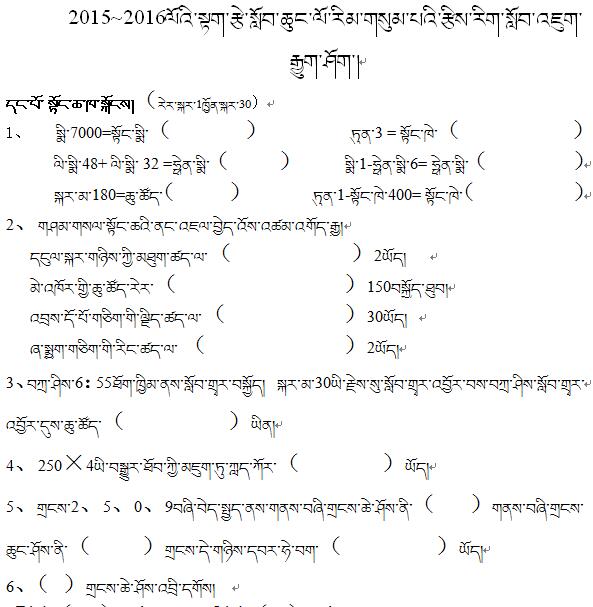 2015~2016ལོའི་སྟག་རྩེ་སློབ་ཆུང་ལོ་རིམ་གསུམ་པའི་རྩིས་རིག་སློབ་འཇུག་
རྒྱུག་ཤོག །
དང་པོ་ སྟོང་ཆ་ཁ་སྐོངས། （རེར་སྐར་1ཁྱོན་སྐར་30）
1、 སྨི་7000=སྟོང་སྨི་（ ） ཏུན་3 = སྟོང་ཁེ་（ ）
ལི་སྨི་48+ ལི་སྨི་ 32 =ཧྥེན་སྨི་（ ） སྨི་1-ཧྥེན་སྨི་6= ཧྥེན་སྨི་（ ）
སྐར་མ་180=ཆུ་ཚོད་（ ） ཏུན་1-སྟོང་ཁེ་400= སྟོང་ཁེ་（ ）
2、 གཤམ་གསལ་སྟོང་ཆའི་ནང་འཇལ་བྱེད་འོས་འཚམ་འགོད་རྒྱུ།
དངུལ་སྐར་གཉིས་ཀྱི་མཐུག་ཚད་ལ་（ ）2ཡོད།
མེ་འཁོར་གྱི་ཆུ་ཚོད་རེར་（ ）150བསྐྱོད་ཐུབ།
འབྲས་དོ་པོ་གཅིག་གི་ལྗིད་ཚད་ལ་（ ）30ཡོད།
ཞ་སྨྱུག་གཅིག་གི་རིང་ཚད་ལ་（ ）2ཡོད།
3、བཀྲ་ཤིས་6：55ཐོག་ཁྱིམ་ནས་སློབ་གྲྭར་བསྐྱོད། སྐར་མ་30ཡི་རྗེས་སུ་སློབ་གྲྭར་འབྱོར་བས་བཀྲ་ཤིས་སློབ་གྲྭར་
འབྱོར་དུས་ཆུ་ཚོད་（ ）ཡིན།
4、 250×4ཡི་བསྒྱུར་ཐོབ་ཀྱི་མཇུག་ཏུ་ཀླད་ཀོར་（ ）ཡོད།
5、 གྲངས་2、 5、 0、 9བཞི་བེད་སྤྱད་ནས་གནས་བཞི་གྲངས་ཆེ་ཤོས་ནི་（ ）གནས་བཞི་གྲངས་
ཆུང་ཤོས་ནི་（ ）གྲངས་དེ་གཉིས་དབར་ཧེ་བག་（ ）ཡོད།
6、（ ）གྲངས་ཆེ་ཤོས་འབྲི་དགོས།